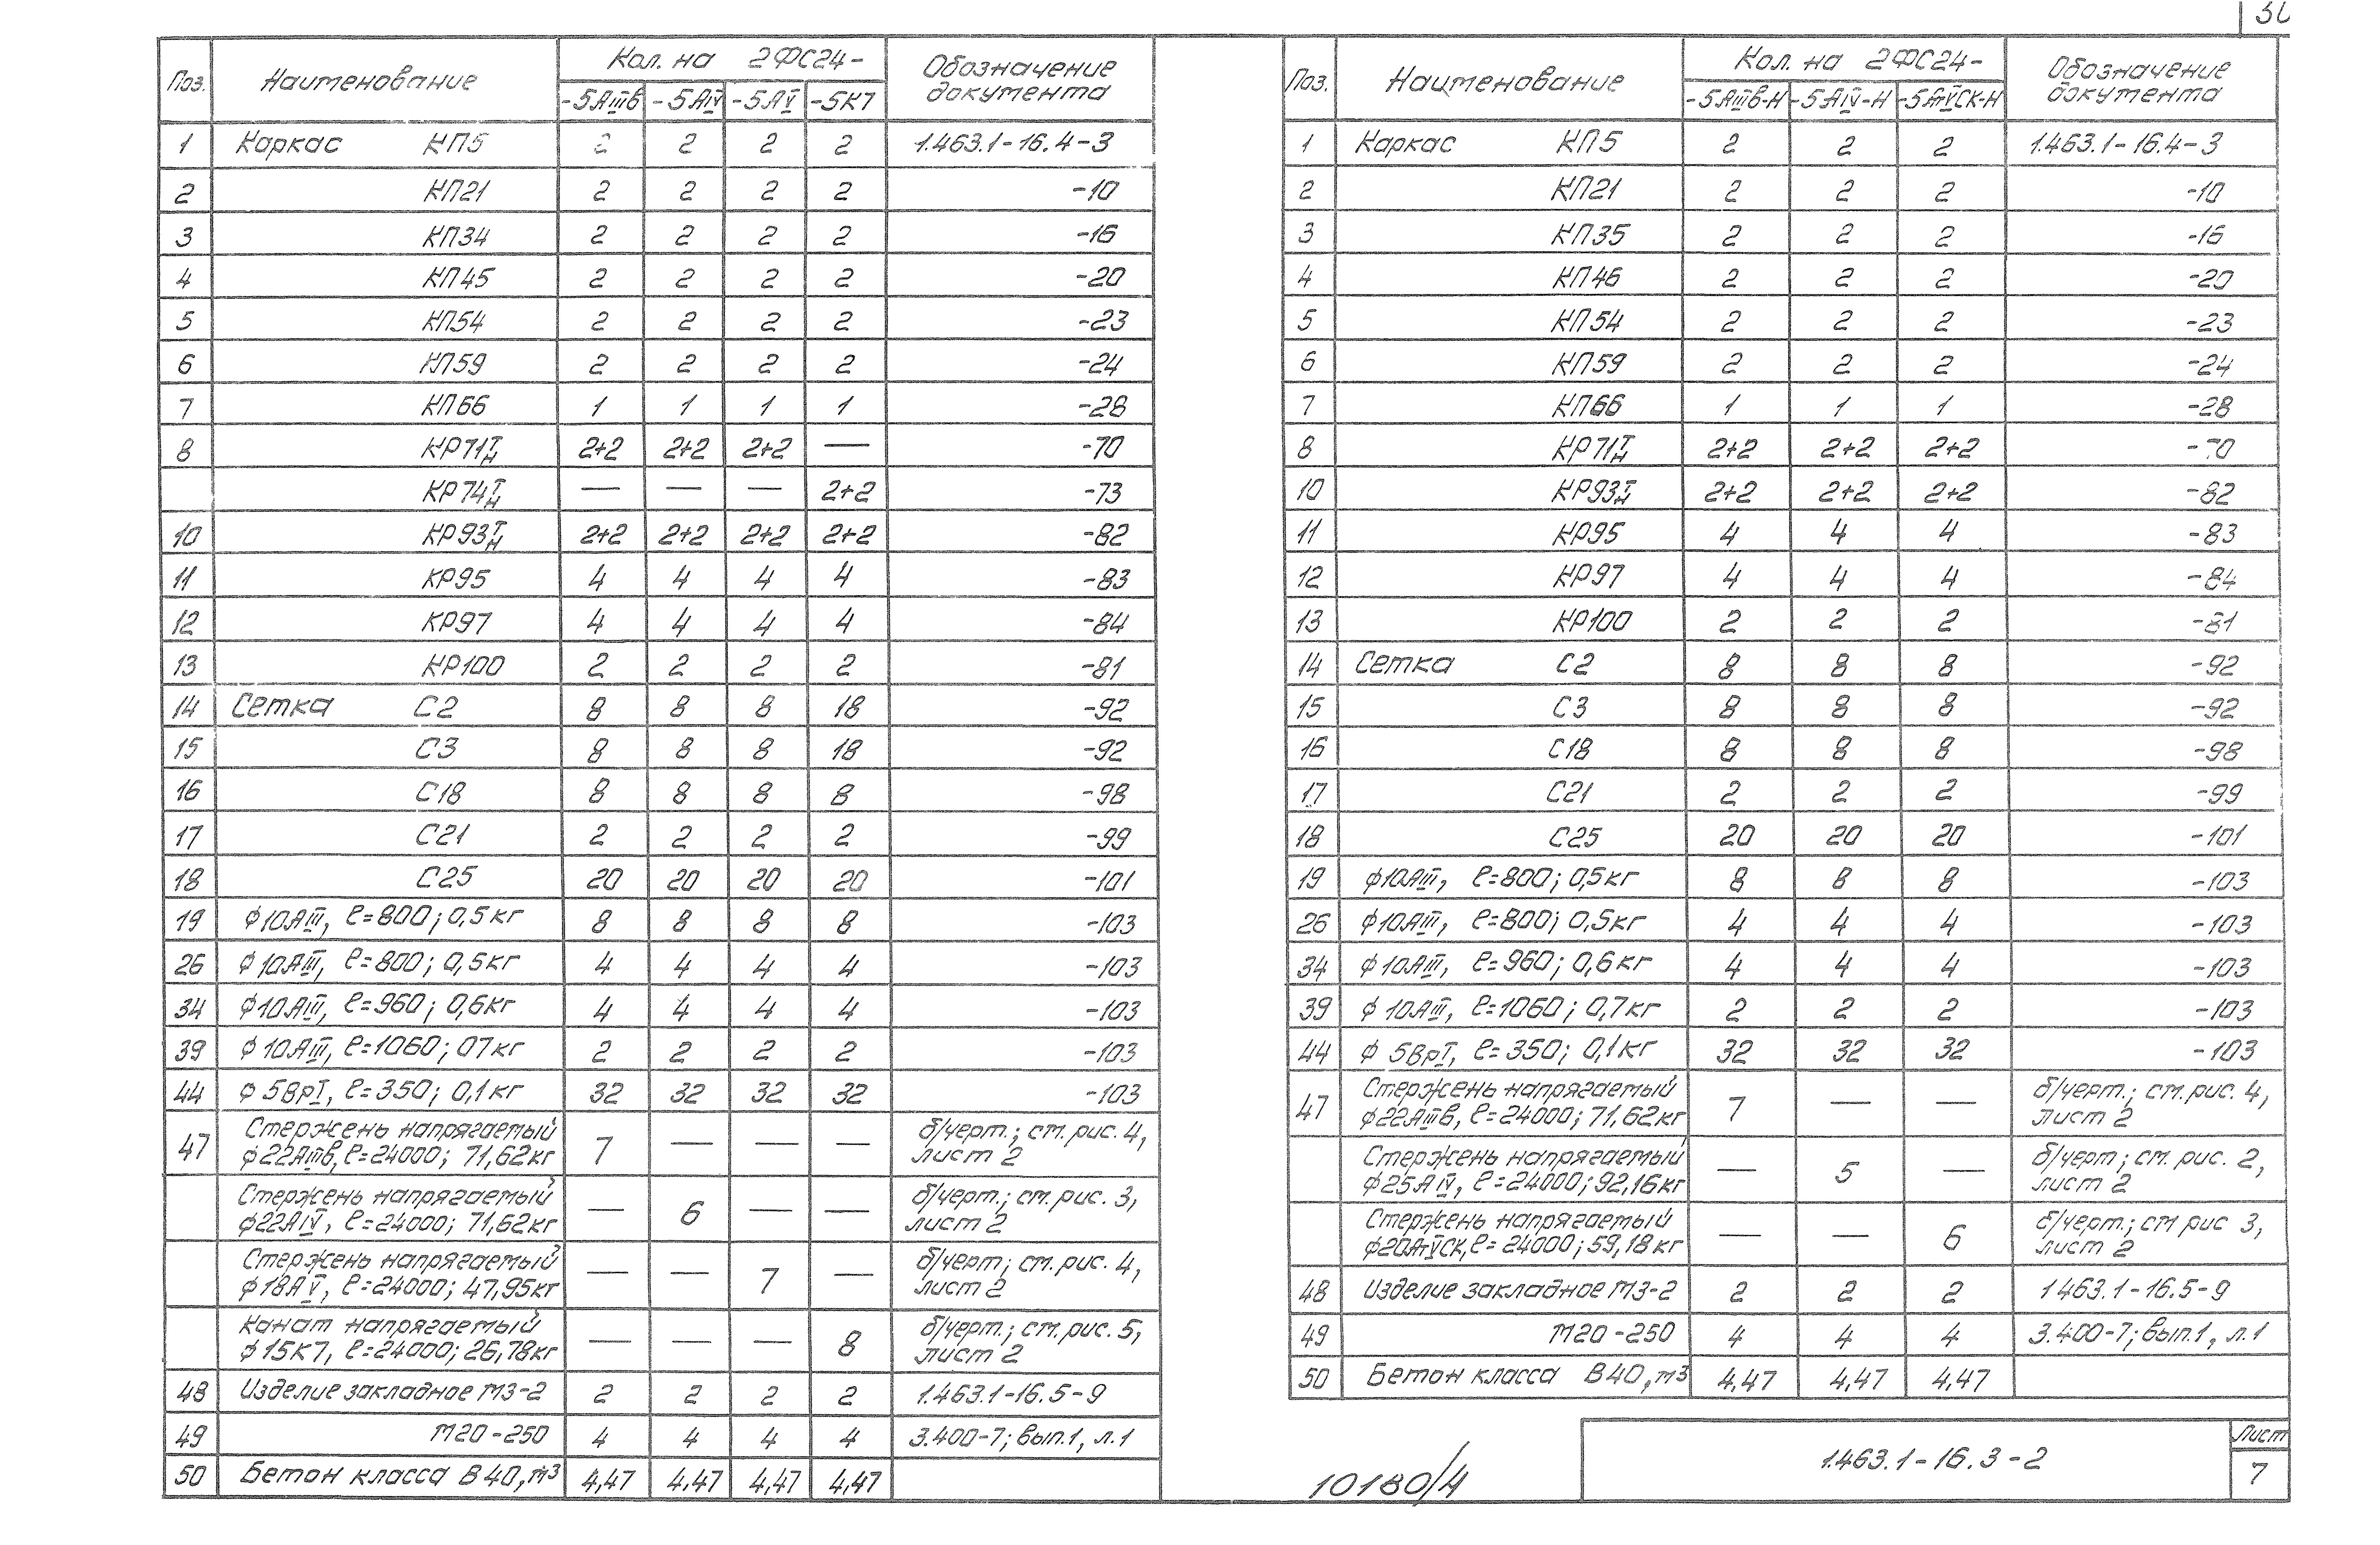 Поз. Наименование Кол. на 2ФС24- Обозначение документа
-5АIIIв -5АIV -5АV -5К7
1 Каркас КП5 2 2 2 2 1.463.1-16.4-3
2 КП21 2 2 2 2 -10
3 КП34 2 2 2 2 -16
4 КП45 2 2 2 2 -20
5 КП54 2 2 2 2 -23
6 КП59 2 2 2 2 -24
7 КП66 1 1 1 1 -28
8 КР71Т/Н 2+2 2+2 2+2 — -70
КР74Т/Н — — — 2+2 -73
10 КР93Т/Н 2+2 2+2 2+2 2+2 -82
11 КР95 4 4 4 4 -83
12 КР97 4 4 4 4 -84
13 КР100 2 2 2 2 -81
14 Сетка С2 8 8 8 18 -92
15 С3 8 8 8 18 -92
16 С18 8 8 8 8 -98
17 С21 2 2 2 2 -99
18 С25 20 20 20 20 -101
19 ф10АIII, ℓ=800; 0,5кг 8 8 8 8 -103
26 ф10АIII, ℓ=800; 0,5кг 4 4 4 4 -103
34 ф10АIII, ℓ=960; 0,6кг 4 4 4 4 -103
39 ф10АIII, ℓ=1060; 07кг 2 2 2 2 -103
44 ф5ВрI, ℓ=350; 0,1кг 32 32 32 32 -103
47 Стержень напрягаемый 7 — — — б/черт.; см. рис. 4,
ф22АIIIв, ℓ=24000; 71,62кг лист 2
Стержень напрягаемый — 6 — — б/черт.; см. рис. 3,
ф22АIV, ℓ=24000; 71,62кг лист 2
Стержень напрягаемый — — 7 — б/черт; см. рис. 4,
ф18АV, ℓ=24000; 47,95кг лист 2
Канат напрягаемый — — — 8 б/черт.; см. рис. 5,
ф15К7, ℓ=24000; 26,78кг лист 2
48 Изделие закладное М3-2 2 2 2 2 1.463.1-16.5-9
49 М20-250 4 4 4 4 3.400-7; вып.1, л.1
50 Бетон класса В40, м³ 4,47 4,47 4,47 4,47
Поз. Наименование Кол. на 2ФС24- Обозначение документа
-5АIIIв-Н -5АIV-Н -5АтVСК-Н
1 Каркас КП5 2 2 2 1.463.1-16.4-3
2 КП21 2 2 2 -10
3 КП35 2 2 2 -16
4 КП46 2 2 2 -20
5 КП54 2 2 2 -23
6 КП59 2 2 2 -24
7 КП66 1 1 1 -28
8 КР71Т/Н 2+2 2+2 2+2 -70
10 КР93Т/Н 2+2 2+2 2+2 -82
11 КР95 4 4 4 -83
12 КР97 4 4 4 -84
13 КР100 2 2 2 -81
14 Сетка С2 8 8 8 -92
15 С3 8 8 8 -92
16 С18 8 8 8 -98
17 С21 2 2 2 -99
18 С25 20 20 20 -101
19 ф10АIII, ℓ=800; 0,5кг 8 8 8 -103
26 ф10АIII, ℓ=800; 0,5кг 4 4 4 -103
34 ф10АIII, ℓ=960; 0,6кг 4 4 4 -103
39 ф10АIII, ℓ=1060; 0,7кг 2 2 2 -103
44 ф 5ВрI, ℓ=350; 0,1кг 32 32 32 -103
47 Стержень напрягаемый 7 — — б/черт.; см. рис. 4,
ф22АIIIв, ℓ=24000; 71,62кг лист 2
Стержень напрягаемый — 5 — б/черт; см. рис. 2,
ф25АIV, ℓ=24000; 92,16кг лист 2
Стержень напрягаемый — — 6 б/черт.; см рис 3,
ф20АтVСК, ℓ=24000; 59,18кг лист 2
48 Изделие закладное М3-2 2 2 2 1463.1-16.5-9
49 М20-250 4 4 4 3.400-7; вып.1, л.1
50 Бетон класса В40, м³ 4,47 4,47 4,47
10180/4
1.463.1-16.3-2
Лист
7